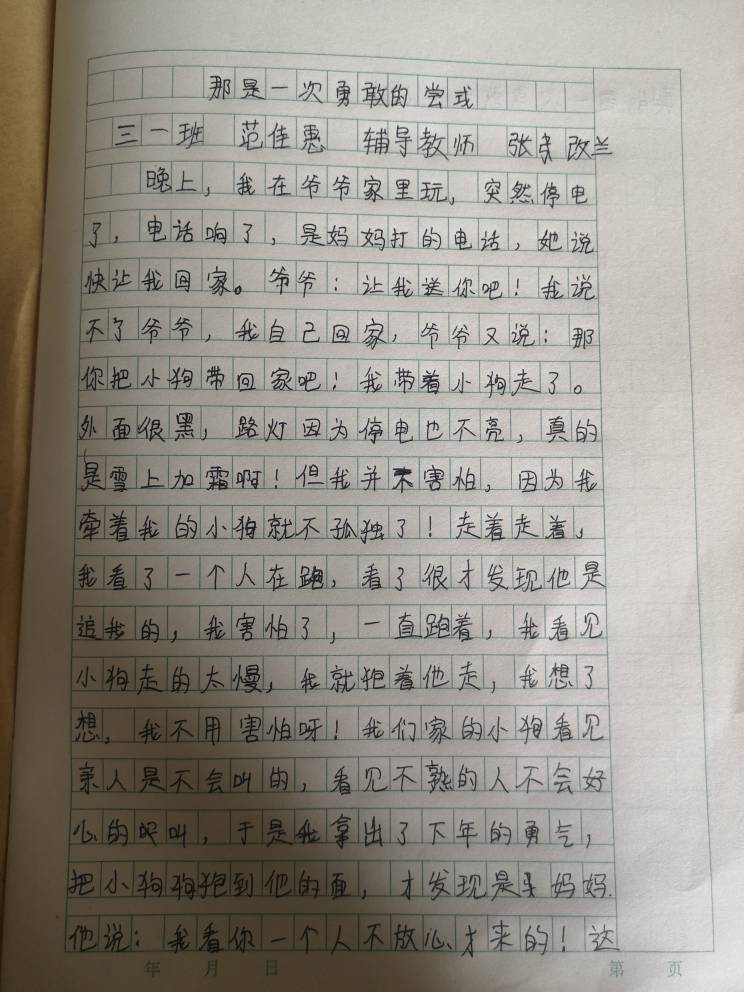 那是一次勇敢的尝戓
三一班 范佳惠 辅导教师 张 改兰
晚上，我在爷爷家里玩，突然停电
了，电话响了，是妈妈打的电话，她说
快让我回家。爷爷：让我送你吧！我说
不了爷爷，我自己回家，爷爷又说：那
你把小狗带回家吧！我带着小狗走了。
外面很黑，路灯因为停电也不亮，真的
是雪上加霜啊！但我并不害怕，因为我
牵着我的小狗就不孤独了！走着走着，
我看了一个人在跑，看了很才发现他是
追我的，我害怕了，一直跑着，我看见
小狗走的太慢，我就抱着他走，我想了
想，我不用害怕呀！我们家的小狗看见
亲人是不会叫的，看见不熟的人不会好
心的叫，于是我拿出了下年的勇气，
把小狗狗抱到他的面，才发现是妈妈.
他说：我看你一个人不放心才来的！这
年 月 日 第 页